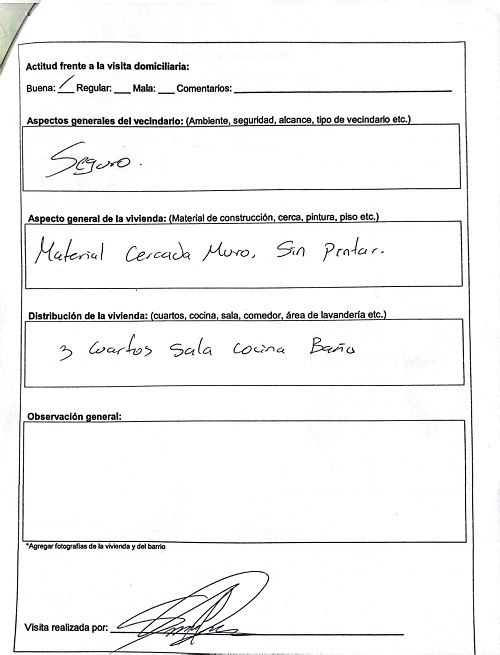 Actitud frente a la visita domiciliaria:
Buena: / Regular: ___ Mala: ___ Comentarios: ___
Aspectos generales del vecindario: (Ambiente, seguridad, alcance, tipo de vecindario etc.)
Seguro.
Aspecto general de la vivienda: (Material de construcción, cerca, pintura, piso etc.)
Material Cercada Muro, Sin Pintar.
Distribución de la vivienda: (cuartos, cocina, sala, comedor, área de lavandería etc.)
3 cuartos sala cocina Baño
Observación general:
*Agregar fotografías de la vivienda y del barrio
Visita realizada por: